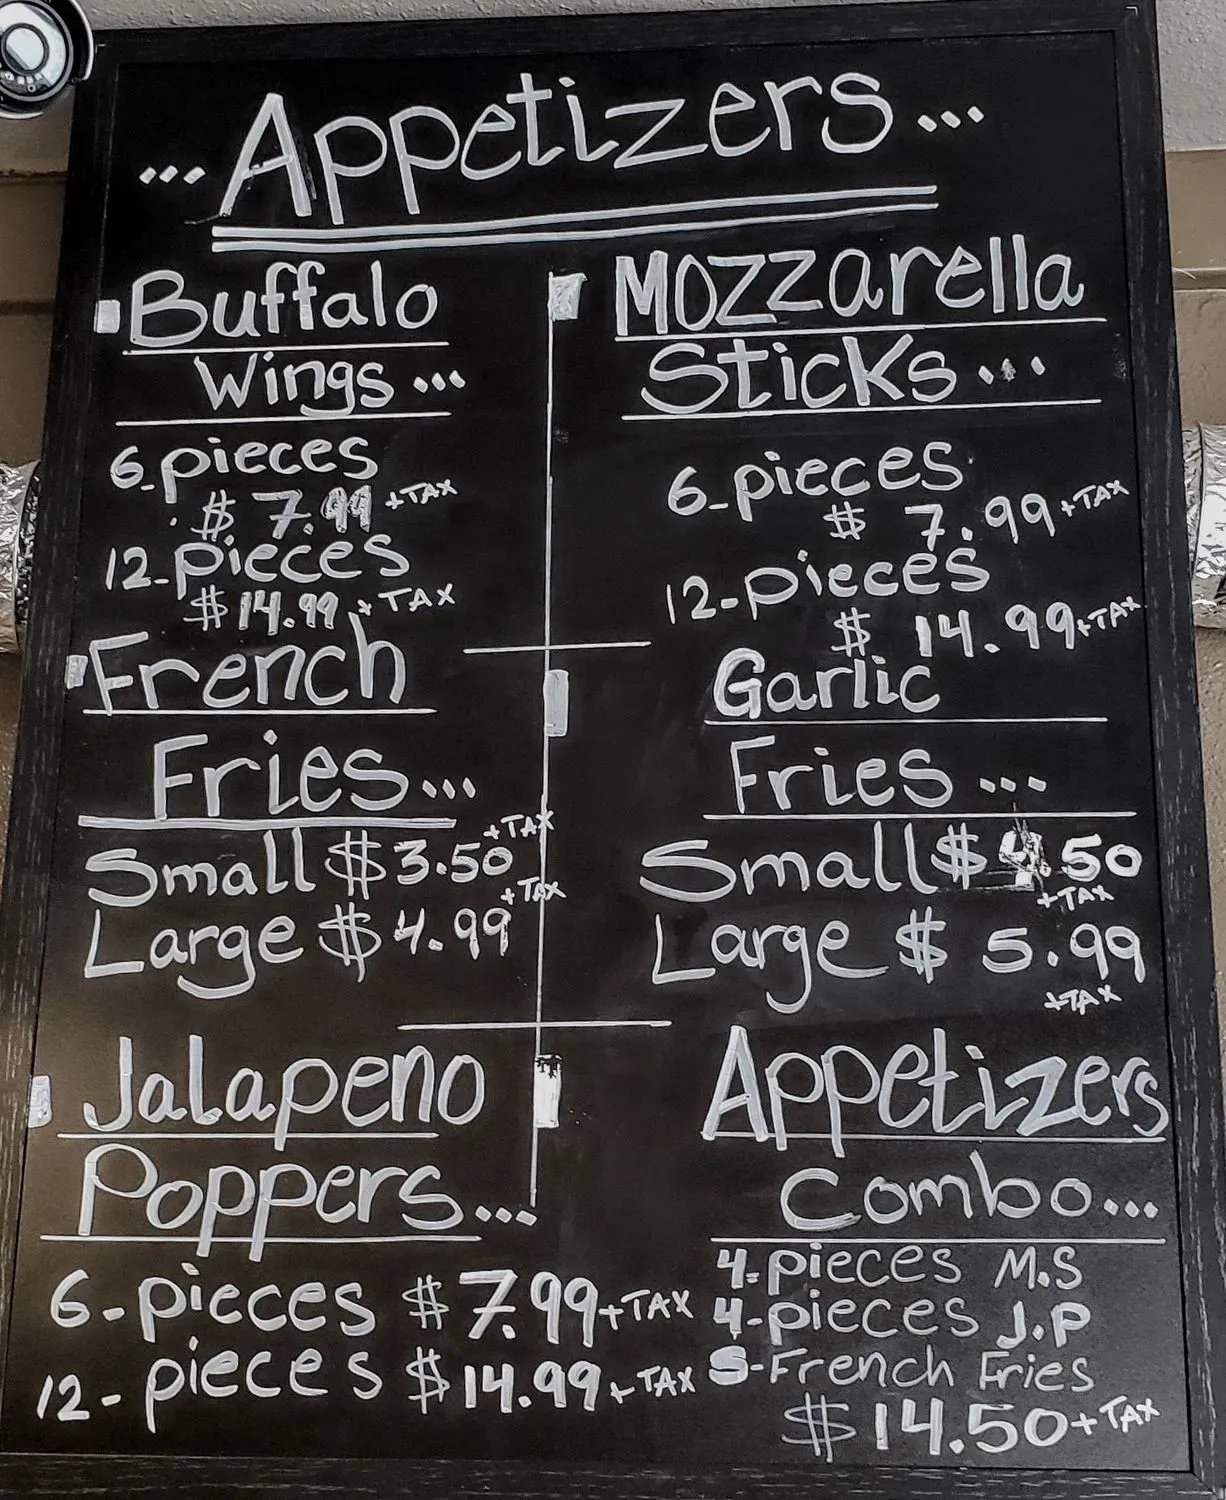 ...Appetizers...
Buffalo
Wings...
6-pieces
$ 7.99 +TAX
12-pieces
$14.99 + TAX
Mozzarella
Sticks...
6-pieces
$ 7.99 +TAX
12-pieces
$ 14.99 +TAX
French
Fries...
Small $3.50 +TAX
Large $4.99 +TAX
Garlic
Fries...
Small $4.50
+TAX
Large $ 5.99
+TAX
Jalapeno
Poppers...
6-pieces $7.99 +TAX
12- pieces $14.99 + TAX
Appetizers
Combo...
4-pieces M.S
4-pieces J.P
S-French Fries
$14.50 + TAX